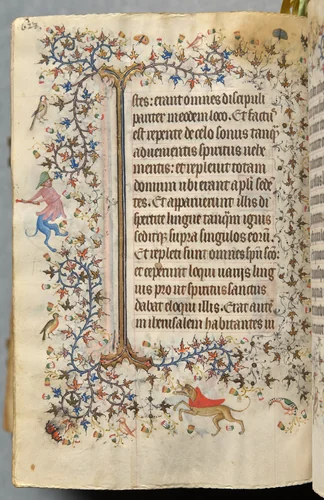 stes: erant omnes discipuli
pariter in eodem loco. Et factus
est repente de celo sonus tanq̄
aduenientis spiritus vehe
mentis: et repleuit totam
domum ubi erant apli̅ sede
tes. Et apparuerunt illis di
spertite lingue tanq̄m ignis
seditq; supra singulos eorū.
Et repleti sunt omnes spū sc̄o:
et ceperunt loqui uarijs ling
uis prout spiritus sanctus
dabat eloqui illis. Erat aute̅
in iherusalem habitantes iu